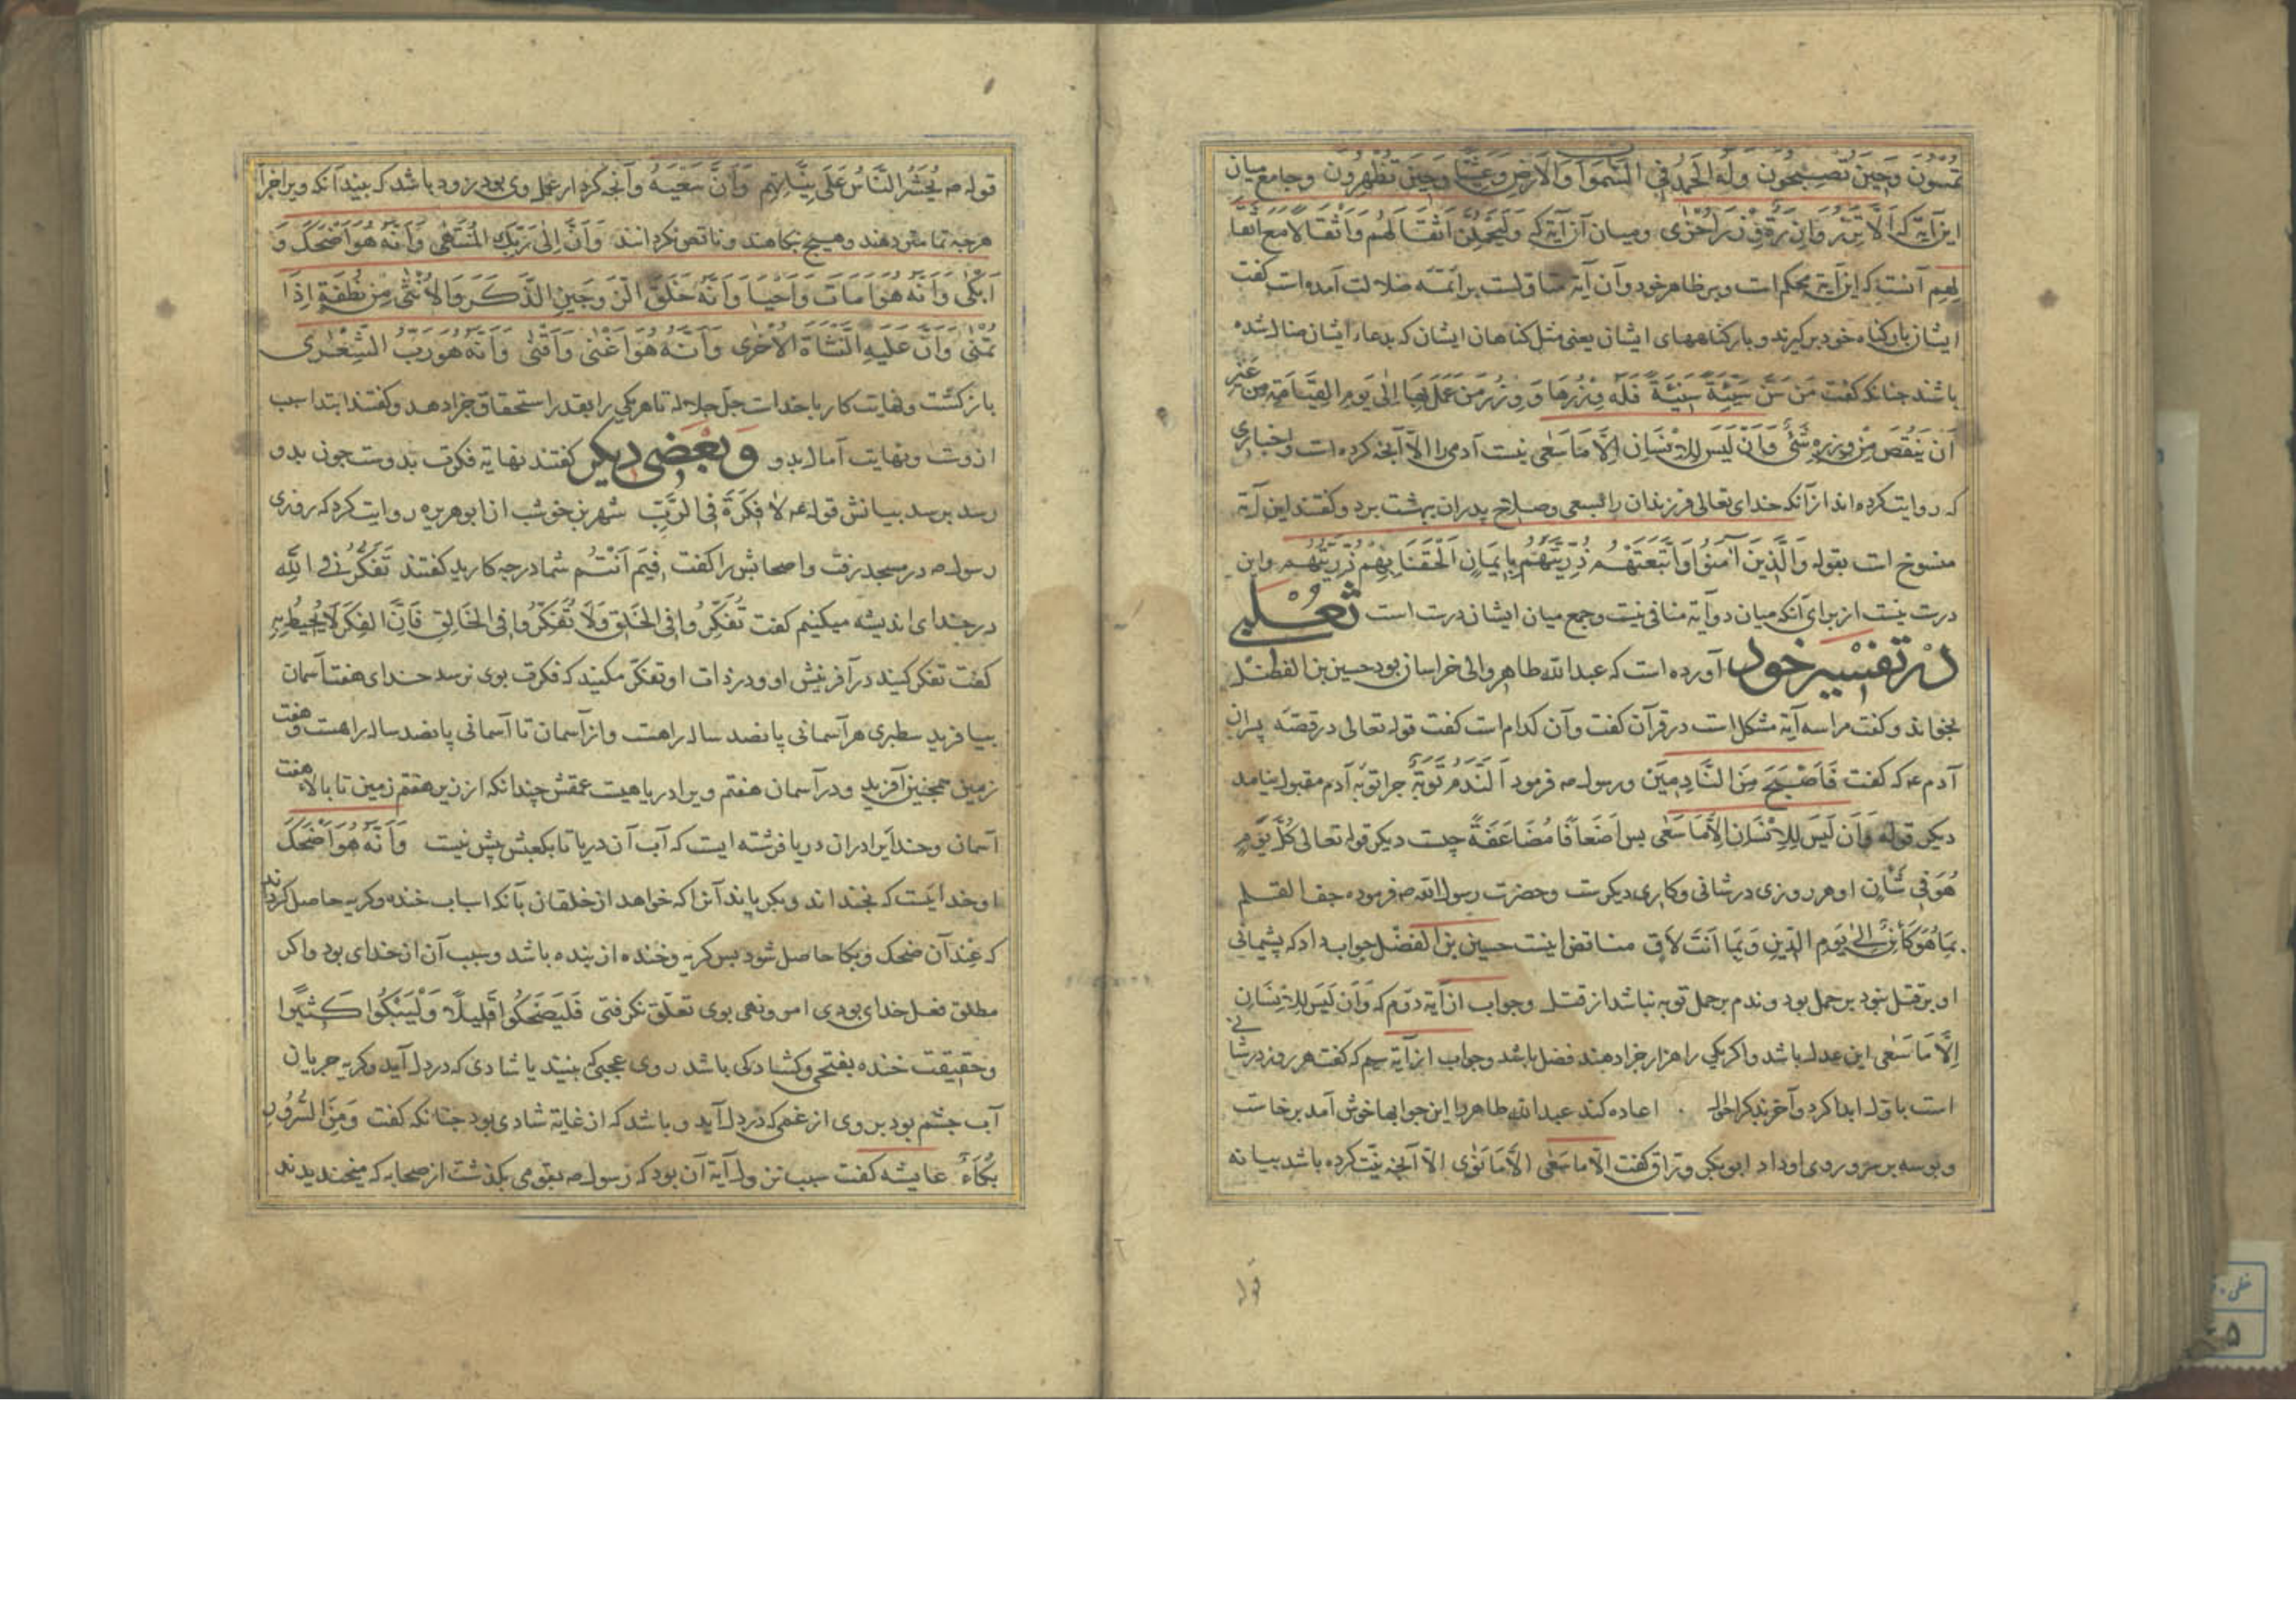 تُمْسُونَ وَحِينَ تُصْبِحُونَ وَلَهُ الْحَمْدُ فِي السَّمَوَاتِ وَالْاَرْضِ وَعَشِيًّا وَحِينَ تُظْهِرُونَ وجامع میان
این آیة که اَلَّا تَزِرُ وَازِرَةٌ وِزْرَ اُخْرٰی ومیان آن آیة که وَلَيَحْمِلُنَّ اَثْقَالَهُمْ وَاَثْقَالًا مَعَ اَثْقَا
لِهِمْ آنست که این آیة محکم است وبر ظاهر خود وآن آیة متناول است بر ائمّه ضلالت آمده است گفت
ایشان بار گناه خود برگیرند و بار گناههای ایشان یعنی مثل گناهان ایشان که بدعاء ایشان ضال شده
باشند چنانکه گفت مَنْ سَنَّ سُنَّةً سَيِّئَةً فَلَهُ وِزْرُهَا وَوِزْرُ مَنْ عَمِلَ بِهَا اِلٰى يَوْمِ الْقِيَامَةِ مِنْ غَيْرِ
اَنْ يَنْقُصَ مِنْ وِزْرِهِ شَيْءٌ وَاَنْ لَيْسَ لِلْاِنْسَانِ اِلَّا مَا سَعٰى نیست آدمی را الّا آنچه کرده است واخباری
که روایت کرده اند از آنکه خدای تعالی فرزندان را بسعی وصلاح پدران ببهشت برد وگفتند این آیة
منسوخ است بقوله وَالَّذِينَ اٰمَنُوا وَاتَّبَعَتْهُمْ ذُرِّيَّتُهُمْ بِاِيمَانٍ اَلْحَقْنَا بِهِمْ ذُرِّيَّتَهُمْ واین
درست نیست از برای آنکه میان دو آیة منافی نیست وجمع میان ایشان درست است ثعلبی
در تفسیر خود آورده است که عبدالله طاهر والی خراسان بود حسین بن الفضل
بخواند وگفت مرا سه آیة مشکل است در قرآن گفت وآن کدام است گفت قوله تعالی در قصّه پسران
آدم ع که گفت فَاَصْبَحَ مِنَ النَّادِمِينَ ورسول ص فرمود اَلنَّدَمُ تَوْبَةٌ چرا توبه آدم مقبول نیامد
دیگر قوله وَاَنْ لَيْسَ لِلْاِنْسَانِ اِلَّا مَا سَعٰى پس اَضْعَافًا مُضَاعَفَةً چیست دیگر قوله تعالی كُلَّ يَوْمٍ
هُوَ فِي شَأْنٍ او هر روزی در شانی وکاری دیگرست وحضرت رسول الله ص فرموده جف القلم
بِمَا هُوَ كَائِنٌ اِلٰى يَوْمِ الدِّينِ وَبِمَا اَنْتَ لَاقٍ مناقض اینست حسین بن الفضل جواب داد که پشیمانی
او بر قتل نبود بر حمل بود وندم بر حمل توبه نباشد از قتل وجواب از آیة دوّم که وَاَنْ لَيْسَ لِلْاِنْسَانِ
اِلَّا مَا سَعٰى این عدل باشد واگر یکی را هزار جزا دهند فضل باشد وجواب از آیة سیم که گفت هر روز در شانی
است باول ابدا کرد وآخر اعاده کند عبدالله طاهر را این جوابها خوش آمد برخاست
وبوسه بر سر وروی او داد ابوبکر ورّاق گفت اِلَّا مَا سَعٰى اِلَّا مَا نَوٰى الّا آنچه نیّت کرده باشد بیانه
قوله
قوله ص يُحْشَرُ النَّاسُ عَلَى نِيَّاتِهِمْ وَاَنَّ سَعْيَهُ وآنچه کردار عمل وی بود زود باشد که ببیند آنکه ویرا جزا
هر چه تمامتر دهند وهیچ نکاهند وناقص نگردانند وَاَنَّ اِلٰى رَبِّكَ الْمُنْتَهٰى وَاَنَّهُ هُوَ اَضْحَكَ وَ
اَبْكٰى وَاَنَّهُ هُوَ اَمَاتَ وَاَحْيَا وَاَنَّهُ خَلَقَ الزَّوْجَيْنِ الذَّكَرَ وَالْاُنْثٰى مِنْ نُطْفَةٍ اِذَا
تُمْنٰى وَاَنَّ عَلَيْهِ النَّشْاَةَ الْاُخْرٰى وَاَنَّهُ هُوَ اَغْنٰى وَاَقْنٰى وَاَنَّهُ هُوَ رَبُّ الشِّعْرٰى
بازگشت ونهایت کار با خداست جلّ جلاله تا هر یکی را بقدر استحقاق جزا دهد وگفتند ابتداء سبب
ازوست ونهایت آمال بدو وَبَعْضِی دیگر گفتند نهایة فکرت بدوست چون بدو
رسد برسد بیانش قوله ع لَا فِكْرَةَ فِي الرَّبِّ شهر بن خوشب از ابوهریره روایت کرد که روزی
رسول ص در مسجد رفت واصحابش را گفت فِيمَ اَنْتُمْ شما در چه کارید گفتند تَفَكُّرٌ فِي اللّٰهِ
در خدای اندیشه میکنیم گفت تَفَكَّرُوا فِي الْخَلْقِ وَلَا تَفَكَّرُوا فِي الْخَالِقِ فَاِنَّ الْفِكْرَ لَا يُحِيطُ بِهِ
گفت تفکر کنید در آفرینش او ودر ذات او تفکّر مکنید که فکرت بوی نرسد خدای هفت آسمان
بیافرید سطبری هر آسمانی پانصد ساله راهست واز آسمان تا آسمانی پانصد ساله راهست وهفت
زمین همچنین آفرید ودر آسمان هفتم ویرا دریاهیست عمقش چندانکه از زیر هفتم زمین تا بالاء هفت
آسمان وخدایرا در ان دریا فرشته ایست که آب آن دریا تا بکعبش بیش نیست وَاَنَّهُ هُوَ اَضْحَكَ
او خدایست که بخنداند وبگریاند آنرا که خواهد از خلقان بآنکه اسباب خنده وگریه حاصل کرداند
که عِنْدَ آن ضحک وبکا حاصل شود پس گریه وخنده از بنده باشد وسبب آن از خدای بود واگر
مطلق فعل خدای بودی امر ونهی بوی تعلّق نگرفتی فَلْيَضْحَكُوا قَلِيلًا وَلْيَبْكُوا كَثِيرًا
وحقیقت خنده بفتحی وگشادگی باشد روی عجبی که بینند یا شادی که در دل آید وگریه جریان
آب چشم بود بر روی از غمی که در دل آید وباشد که از غایة شادی بود چنانکه گفت وَمِنَ السُّرُورِ
بُكَاءٌ عایشه گفت سبب نزول آیة آن بود که رسول ص بقومی بگذشت از صحابه که میخندیدند